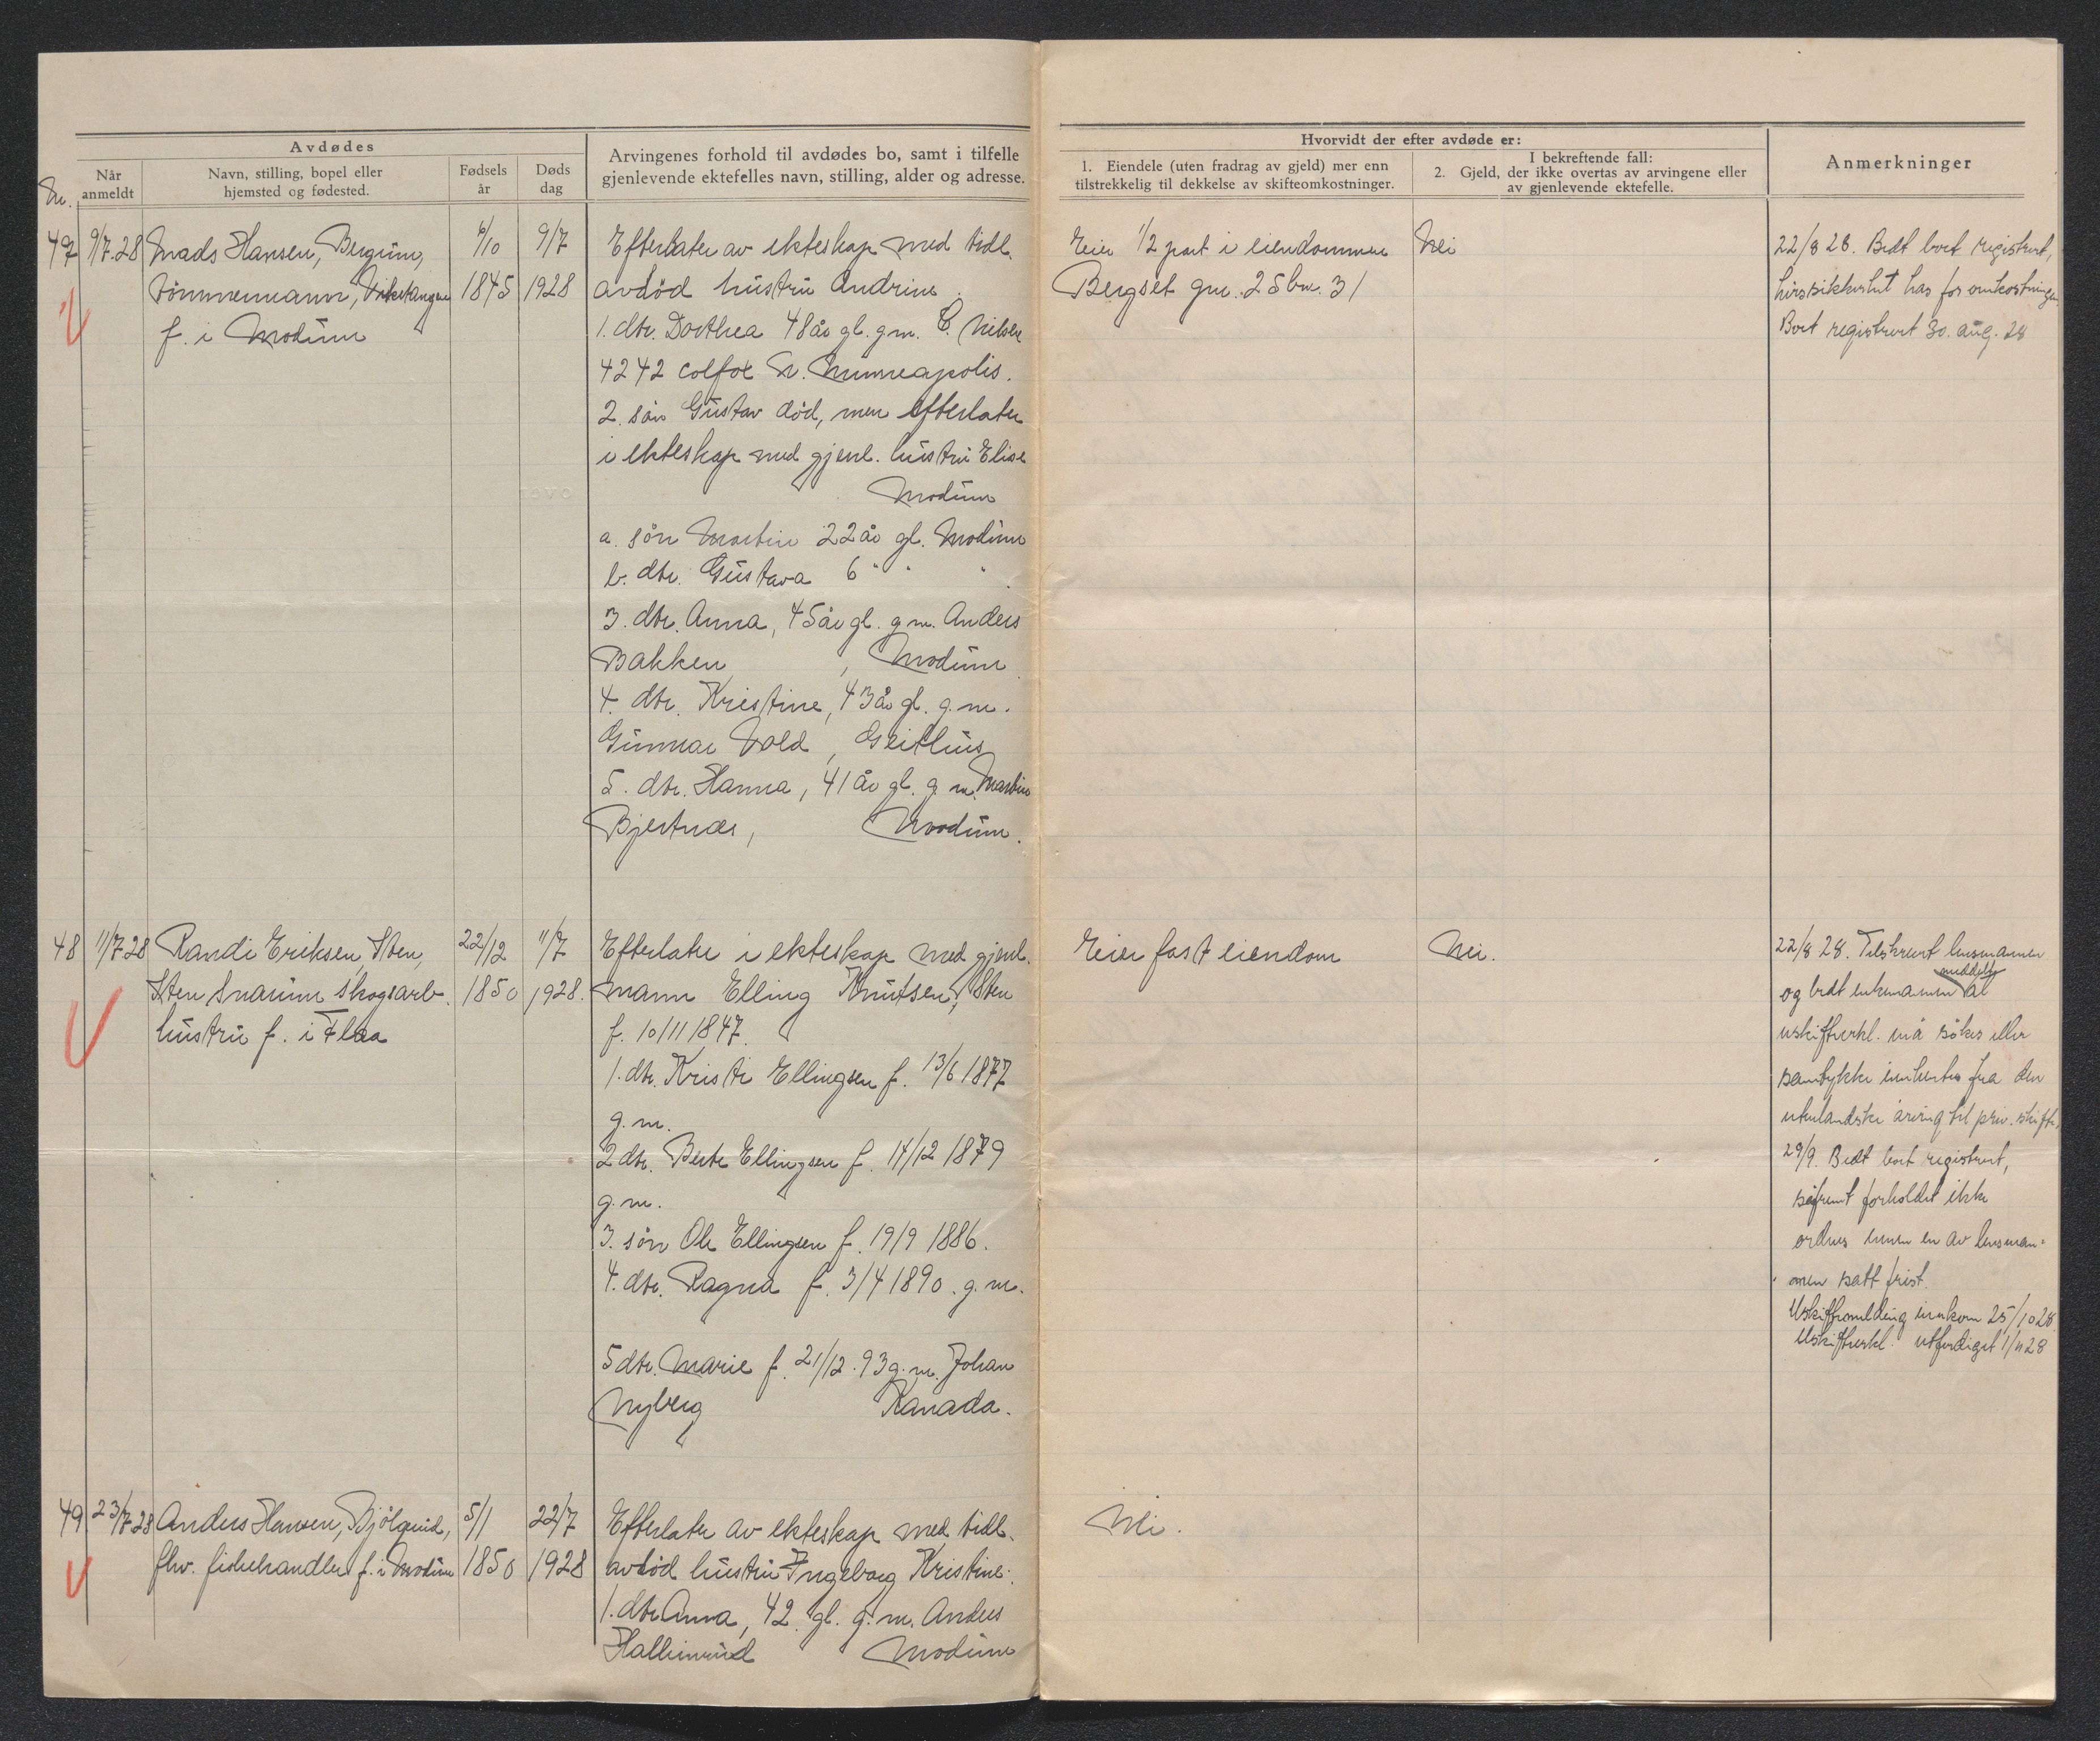 Avdødes
Nr.
Når anmeldt
Navn, stilling, bopel eller hjemsted og fødested.
Fødsels år
Døds dag
Arvingenes forhold til avdødes bo, samt i tilfelle gjenlevende ektefelles navn, stilling, alder og adresse.
Hvorvidt der efter avdøde er:
1. Eiendele (uten fradrag av gjeld) mer enn tilstrekkelig til dekkelse av skifteomkostninger.
I bekreftende fall:
2. Gjeld, der ikke overtas av arvingene eller av gjenlevende ektefelle.
Anmerkninger
47
9/7.28
Mads Hansen, Bergum,
tömmermann, Vikersund
f. i Modum
/10
1845
9/7
1928
Efterlater av ekteskap med tidl.
avdöd hustru Andrine.
1. dtr. Dorthea 48 år gl. g.m. C. Nilsen
4242 Colfox N. Minneapolis.
2. sön Gustav död, men efterlater
i ekteskap med gjenl. hustru Elise
Modum
a. sön Martin 22 år gl. Modum
b. dtr. Gustava 6 " " "
3. dtr. Anna, 45 år gl. g.m. Anders
Bakken, Modum
4. dtr. Kristine, 43 år gl. g.m.
Gunnar Vold, Geithus
5. dtr. Hanna, 41 år gl. g.m. Martin
Bjertnæs, Modum.
Eier 1/2 part i eiendommen
Bergset gnr. 25 bnr. 31
Nei
22/8 28. Bedt boet registrert,
hvis sikkerhet has for omkostningene
Boet registrert 30. aug. 28
48
11/7 28
Randi Eriksen, Sten,
Sten Snarum skogsarb.
hustru f. i Flaa
22/12
1850
11/7
1928.
Efterlater i ekteskap med gjenl.
mann Elling Knutsen, Sten
f. 10/11 1847.
1. dtr. Kristi Ellingsen f. 13/6 1877
g.m.
2 dtr. Berte Ellingsen f. 14/12 1879
g.m.
3. sön Ole Ellingsen f. 19/9 1886.
4. dtr. Ragna f. 3/4 1890. g.m.
5 dtr. Marie f. 21/12.93 g.m. Johan
Nyberg Kanada.
Eier fast eiendom
Nei.
22/8 28. Tilskrevet lensmannen
og bedt enkemannen meddelt at
uskifteerkl. må sökes eller
samtykke innhentes fra den
utenlandske arving til priv. skifte.
29/9. Bedt boet registrert,
såfremt forholdet ikke
ordnes innen en av lensman-
nen satt frist.
Uskiftemelding innkom 25/10 28
Uskifteerkl. utferdiget 1/11 28
49
23/7 28
Anders Hansen, Bjölgerud,
fhv. fiskehandler f. i Modum
5/1
1850
22/7
1928
Efterlater av ekteskap med tidl.
avdöd hustru Ingeborg Kristine:
1. dtr Anna, 42 gl. g.m. Anders
Hallinrud Modum
Nei.